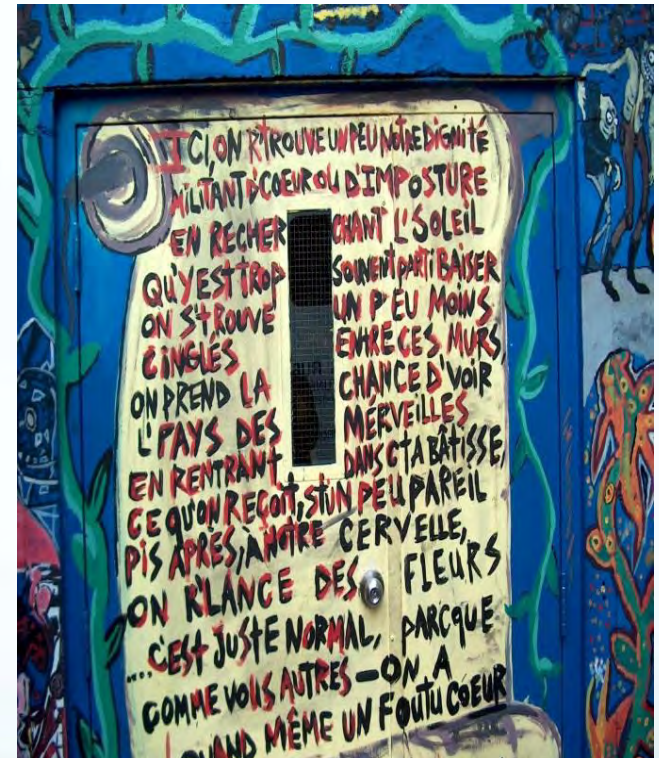 ICI, ON R'TROUVE UN PEU NOTRE DIGNITÉ
MILITANT D'COEUR OU D'IMPOSTURE
EN RECHERCHANT L'SOLEIL
QU'Y EST TROP SOUVENT PARTI BAISER
ON S'TROUVE UN P'EU MOINS
CINGLÉS ENTRE CES MURS,
ON PREND LA CHANCE D'VOIR
L'PAYS DES MERVEILLES
EN RENTRANT DANS C'TA BÂTISSE,
CE QU'ON REÇOIT, S'T'UN PEU PAREIL
PIS APRÈS, À NOTRE CERVELLE,
ON R'LANCE DES FLEURS
....C'EST JUSTE NORMAL, PARCQUE
COMME VOUS AUTRES - ON A
QUAND MÊME UN FOUTU COEUR